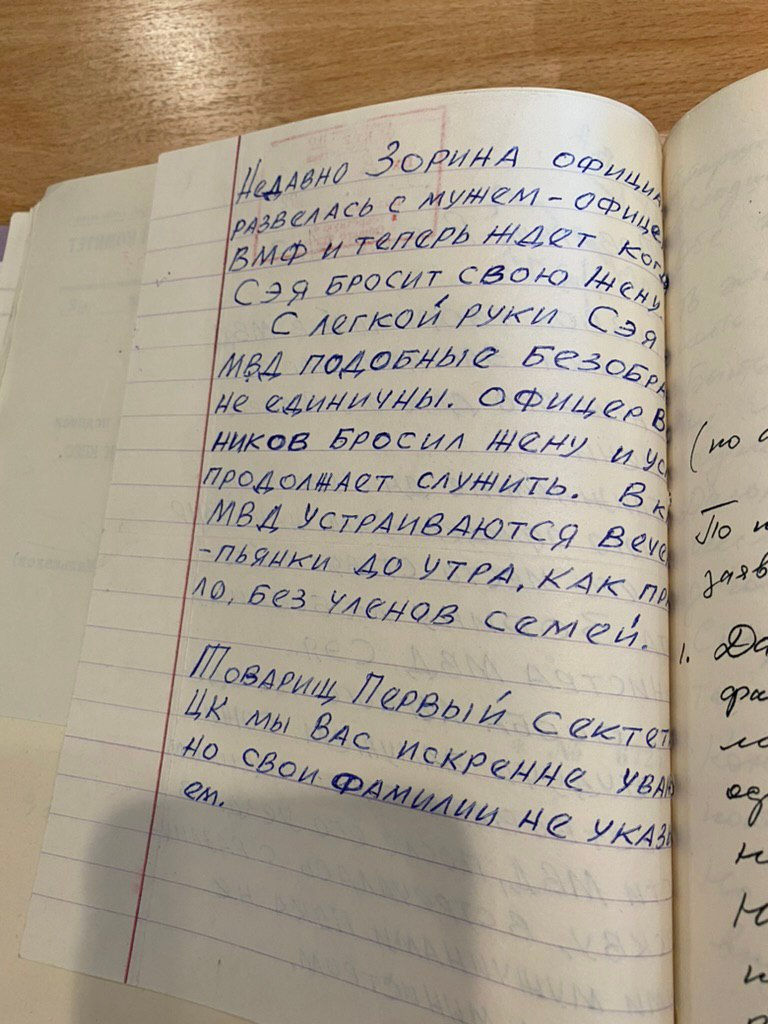 Недавно Зорина официа
развелась с мужем - офице
ВМФ и теперь ждет ког
Сэя бросит свою жену.
С легкой руки Сэя
МВД подобные безобра
не единичны. Офицер В
ников бросил жену и ус
продолжает служить. В к
МВД устраиваются вече
-пьянки до утра, как пра
ло, без членов семей.
Товарищ Первый Сектет
ЦК мы Вас искренне уваж
но свои фамилии не указы
ем.
(по
По
заяв
1. Да
фа
ло
од
н